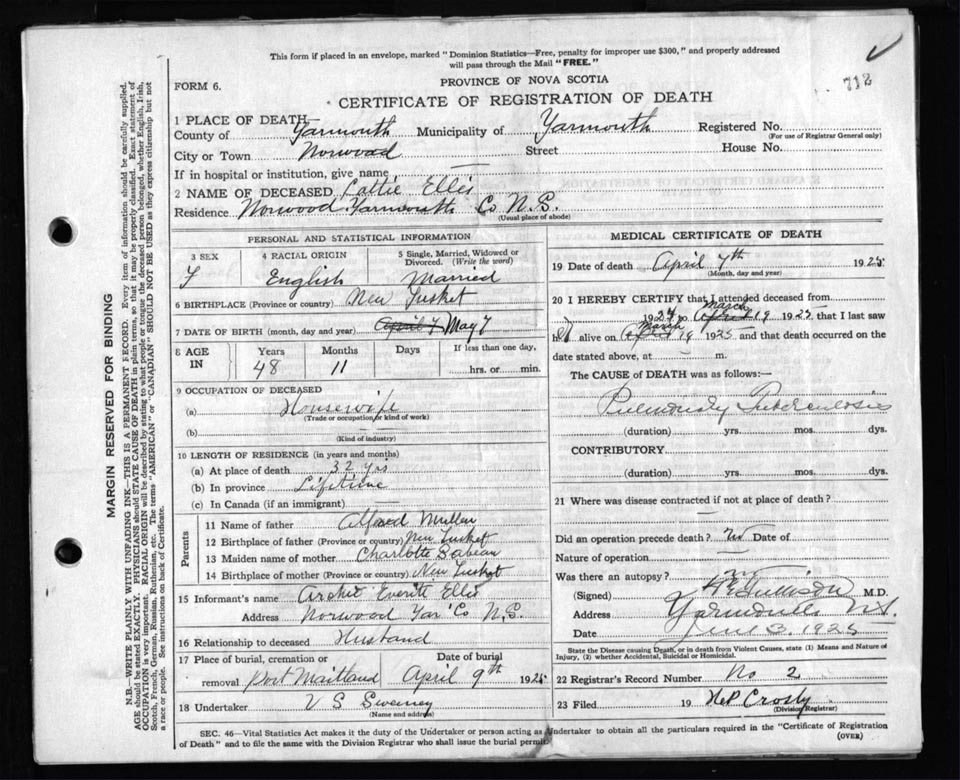 This form if placed in an envelope, marked "Dominion Statistics—Free, penalty for improper use $300," and properly addressed
will pass through the Mail "FREE."
712
FORM 6.
PROVINCE OF NOVA SCOTIA
CERTIFICATE OF REGISTRATION OF DEATH
1 PLACE OF DEATH
County of Yarmouth Municipality of Yarmouth Registered No.
(For use of Registrar General only)
City or Town Norwood Street House No.
If in hospital or institution, give name —
2 NAME OF DECEASED Ellis
Residence Norwood Yarmouth Co N.S.
(Usual place of abode)
MARGIN RESERVED FOR BINDING
N.B.—WRITE PLAINLY WITH UNFADING INK—THIS IS A PERMANENT RECORD. Every item of information should be carefully supplied.
AGE should be stated EXACTLY. PHYSICIANS should STATE CAUSE OF DEATH in plain terms, so that it may be properly classified. Exact statement of
OCCUPATION is very important. RACIAL ORIGIN will be described by stating to what people or tongue the deceased person belonged, whether English, Irish,
Scotch, French, German, Russian, Ruthenian, etc. The terms "AMERICAN" or "CANADIAN" SHOULD NOT BE USED as they express citizenship but not
a race or people. See instructions on back of Certificate.
PERSONAL AND STATISTICAL INFORMATION
3 SEX 4 RACIAL ORIGIN 5 Single, Married, Widowed or
Divorced. (Write the word)
F English Married
6 BIRTHPLACE (Province or country) New Tusket
7 DATE OF BIRTH (month, day and year) April 7 May 7
8 AGE IN Years Months Days If less than one day,
48 11 hrs. or min.
9 OCCUPATION OF DECEASED
(a) Housewife
(Trade or occupation or kind of work)
(b)
(Kind of industry)
10 LENGTH OF RESIDENCE (in years and months)
(a) At place of death 32 yrs
(b) In province Lifetime
(c) In Canada (if an immigrant)
Parents
11 Name of father Alfred Mullen
12 Birthplace of father (Province or country) New Tusket
13 Maiden name of mother Charlotte Sabean
14 Birthplace of mother (Province or country) New Tusket
15 Informant's name Everite Ellis
Address Norwood Yar Co N.S.
16 Relationship to deceased Husband
17 Place of burial, cremation or Date of burial
removal Port Maitland April 9th 1925
18 Undertaker V S Sweeney
(Name and address)
MEDICAL CERTIFICATE OF DEATH
19 Date of death April 7th 1925
(Month, day and year)
20 I HEREBY CERTIFY that I attended deceased from
March
1924 to April 19 1925, that I last saw
March
h alive on April 19 1925 and that death occurred on the
date stated above, at — m.
The CAUSE of DEATH was as follows:—
Pulmonary Tuberculosis
(duration) yrs. mos. dys.
CONTRIBUTORY
(duration) yrs. mos. dys.
21 Where was disease contracted if not at place of death?
—
Did an operation precede death? No Date of
Nature of operation —
Was there an autopsy? no
(Signed) M.D.
Address Yarmouth NS
Date June 3. 1925
State the Disease causing Death, or in death from Violent Causes, state (1) Means and Nature of
Injury, (2) whether Accidental, Suicidal or Homicidal.
22 Registrar's Record Number No 2
23 Filed 19 Crosby
(Division Registrar)
SEC. 46—Vital Statistics Act makes it the duty of the Undertaker or person acting as Undertaker to obtain all the particulars required in the "Certificate of Registration
of Death" and to file the same with the Division Registrar who shall issue the burial permit.
(OVER)